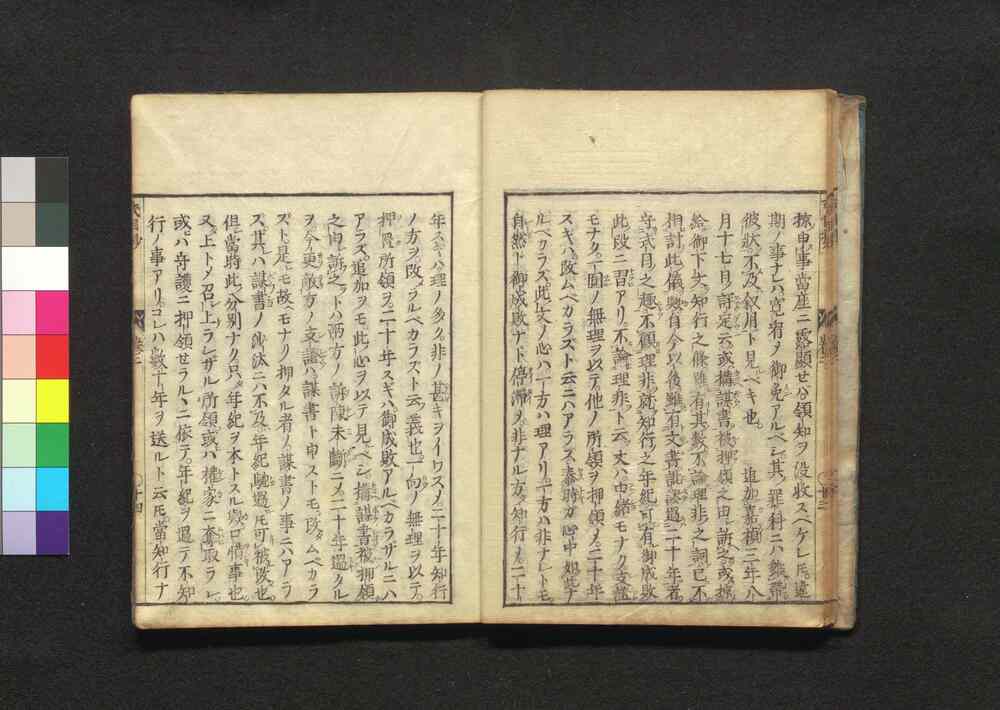 掠申事當座ニ露顯せハ領知ヲ没收スヘケレ𪜈遠
期ノ事ナレハ寛宥ノ御免アルヘシ其罪科ニハ
彼狀不及叙用ト見ヘキ也 追加嘉禎三年八
月十七日ノ評定云或搆謀書被押領之由訴之或掠
給御下文知行之條雖有其數不論理非之詞已不
相討此儀與自今以後雖有文書訛謬過二十年者
守式目之趣不顧理非就知行之年紀可有御成敗
此段ニ習アリ不論理非ト云丈ハ由緒モナク支證
モナク一圓ノ無理ヲ以テ他ノ所領ヲ押領メ二十年
スギハ改ムベカラスト云ニハアラス泰時ガ心中如此ナ
ルベカラス此文ノ心ハ一方ハ理アリ一方ハ非ナレトモ
自然ト御成敗ナト停滯メ非ナル方知行メ二十
年スギハ理ノ多ク非ノ甚キヲイワスメ二十年知行
ノ方ヲ改ラルベカラスト云義也一向ノ無理ヲ以テ
押置所領ヲ二十年スギハ御成敗アルベカラザルニハ
アラズ追加ヲモ此心ヲ以テ見ベシ搆謀書被押領
之由訴之ト八兩方ノ訴陳未斷ニメ二十年過タル
ヲ今更敵方ノ支證ハ謀書ト申ストモ改タムベカラ
スト是モ故モナク押タル者ノ謀書ノ事ニハアラ
ス其ハ謀書ノ御沙汰ニ不及年紀馳過𪜈可被改也
但當時此ノ分別ナク只年紀ヲ本トスル歎口惜事也
又上トメ召シ上ラレザル所領或ハ權家ニ奪取ラレ
或ハ守護ニ押領せラルヽニ依テ年紀ヲ過テ不知
行ノ事アリコレハ數十年ヲ送ルト云𪜈當知行ナ